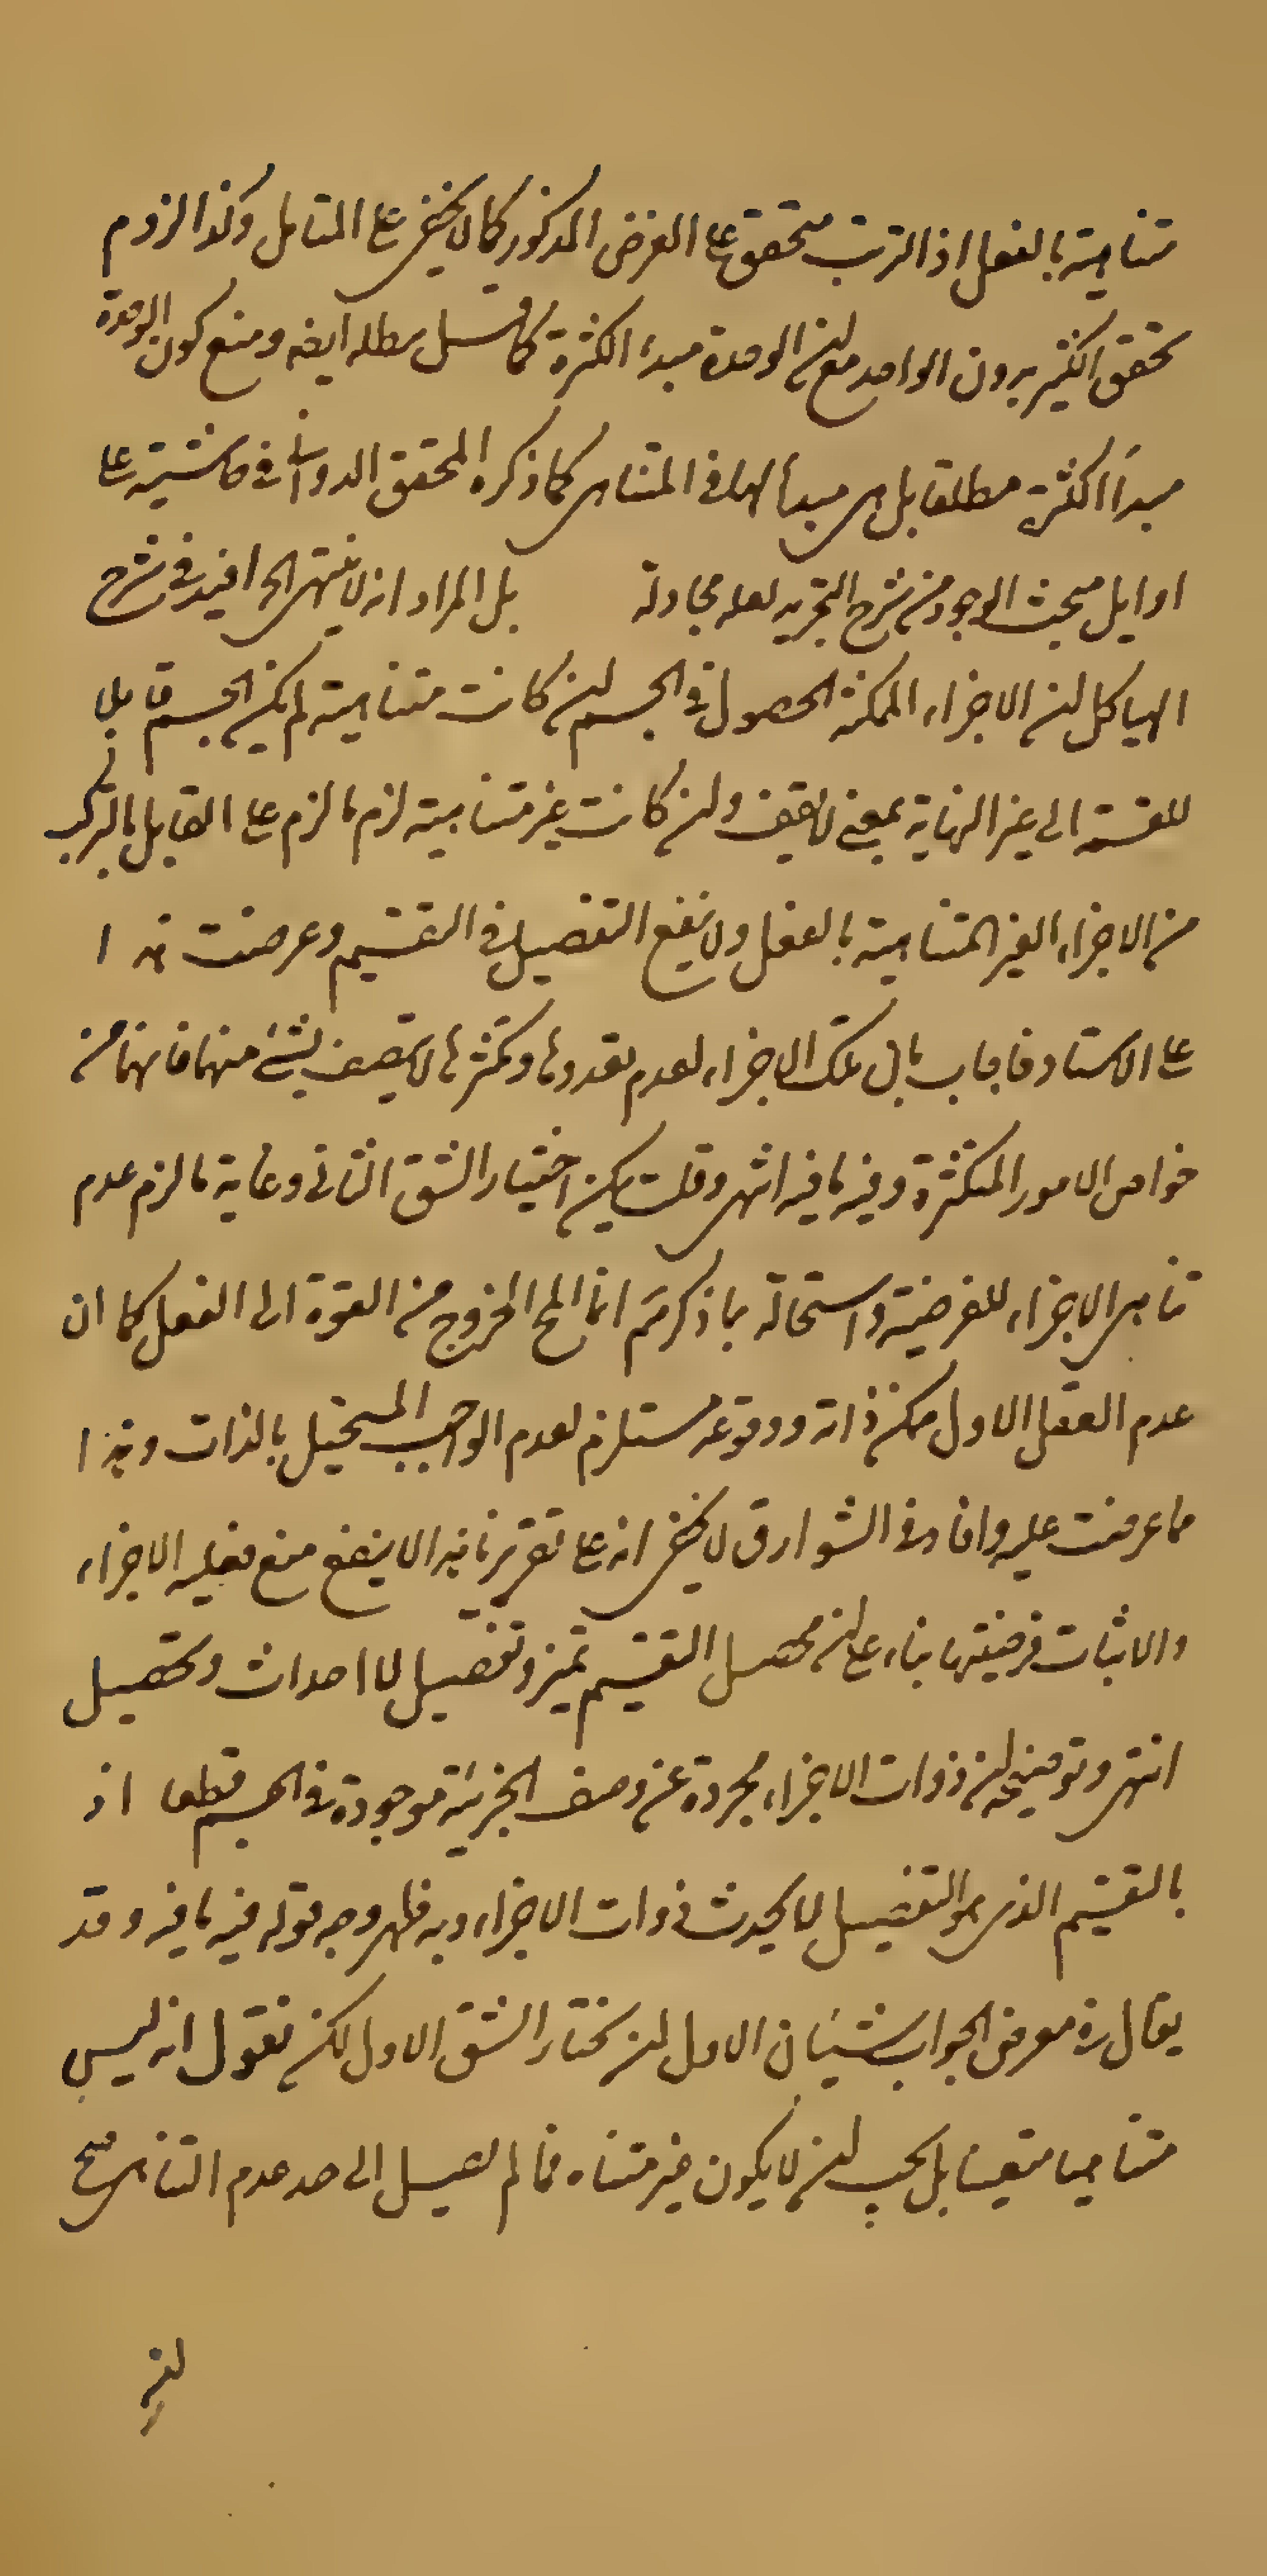 متناهية بالفعل اذ الترتب متحقق على الفرض المذكور كما لا يخفى على المتامل وكذا لزوم
تحقق الكثير بدون الواحد مع ان الوحدة مبدء الكثرة كالتسلسل يبطله ايضه ومنع كون الوحدة
مبدأ الكثرة مطلقا بل هي مبدأ لها في المتناهي كما ذكره المحقق الدواني في حاشيته على
اوايل مبحث الوجود من شرح التجريد لعله مجادلة بل المراد انه لا ينتهى الخ افيد في شرح
الهياكل ان الاجزاء الممكنة الحصول في الجسم ان كانت متناهية لم يكن الجسم قابلا
للقسمة الى غير النهاية بمعنى لا يقف وان كانت غير متناهية لزم ما لزم على القايل بالتركب
من الاجزاء الغير المتناهية بالفعل ولا ينفع التفصيل في التقسيم وعرضت هذا
على الاستاد فاجاب بان تلك الاجزاء لعدم تعددها وتكثرها لا يتصف بشئ منهما فانهما من
خواص الامور المتكثرة وفيه ما فيه انتهى وقلت يمكن اختيار الشق الثاني وغاية ما لزم عدم
تناهي الاجزاء الفرضية واستحالة ما ذكرتم انما المح الخروج من القوة الى الفعل كما ان
عدم العقل الاول ممكن ذاته ووقوعه مستلزم لعدم الواجب المستحيل بالذات وهذا
ما عرضت عليه وافاد في الشوارق لا يخفى انه على تقريرنا هذا لا ينفع منع فعلية الاجزاء
والاثبات فرضيتها بناء على ان محصل التقسيم تميز وتفصيل لا احداث وتحصيل
انتهى وتوضيحه ان ذوات الاجزاء مجردة عن وصف الجزئية موجودة في الجسم قطعا اذ
بالتقسيم الذي هو التفصيل لا يحدث ذوات الاجزاء وبه ظهر وجه قوله فيه ما فيه وقد
يقال في معرض الجواب شيئان الاول ان نختار الشق الاول لكن نقول انه ليس
متناهيا متعينا بل يجب ان لا يكون غير متناه فما لم يصل الى حد عدم التناهي صح
ان